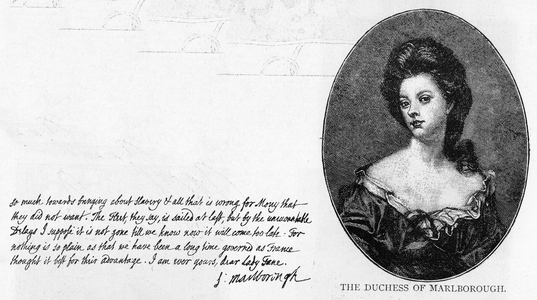 so much towards bringing about Slavery & all that is wrong for Mony that
they did not want. The Fleet, they say, is sailed at last, but by the unaccountable
Delays I suppose it is not gone till we know now it will come too late. For
nothing is so plain as that we have been a long time governed as France
thought it best for this advantage. I am ever yours, dear Lady Jane.
S: Marlborough
THE DUCHESS OF MARLBOROUGH.